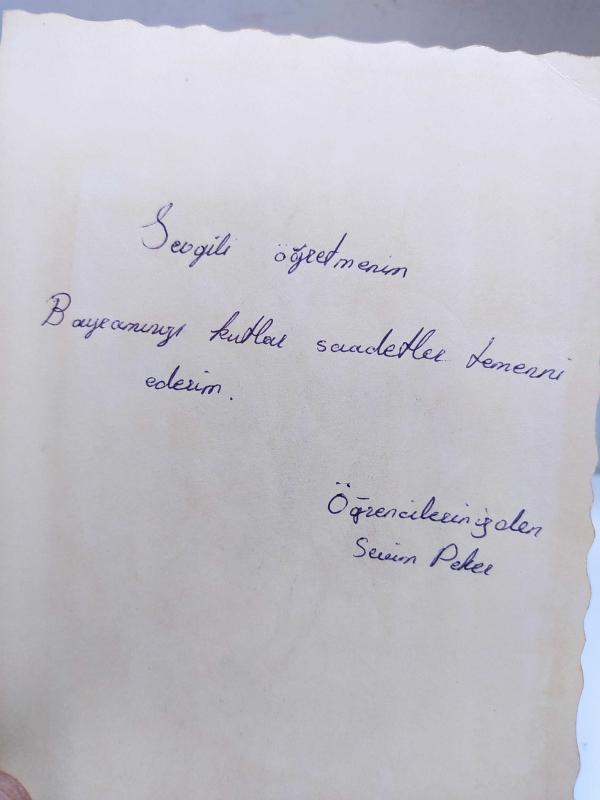 Sevgili öğretmenim
Bayramınızı kutlar saadetler temenni
ederim.
Öğrencilerinizden
Sevim Peker